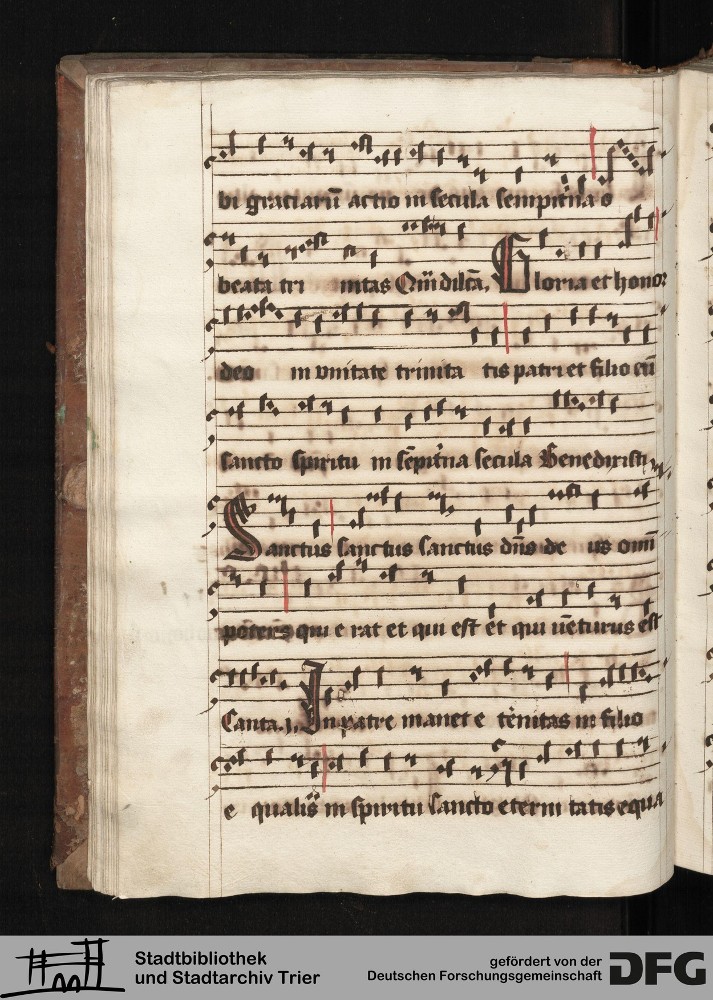 bi graciarū actio in secula sempit̾na o
beata tri nitas Qm̄ dilc̄a. Gloria et honor
deo in vnitate trinita tis patri et filio cū
sancto spiritu in sēpit̾na secula Benedixisti
Sanctus sanctus sanctus dn̄s de us omn̄
potens qui e rat et qui est et qui uēturus est
Canta.i. In patre manet e t̾nitas in filio
e qualis in spiritu sancto eterni tatis equa
Stadtbibliothek
und Stadtarchiv Trier
gefördert von der
Deutschen Forschungsgemeinschaft
DFG